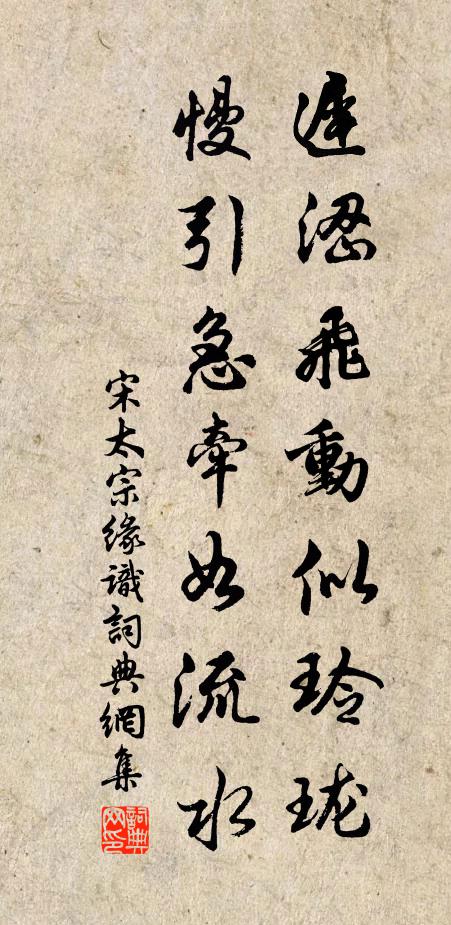 遲澀飛動似玲瓏
慢引急牽如流水
宋太宗緣識詞典網集
詞典网印